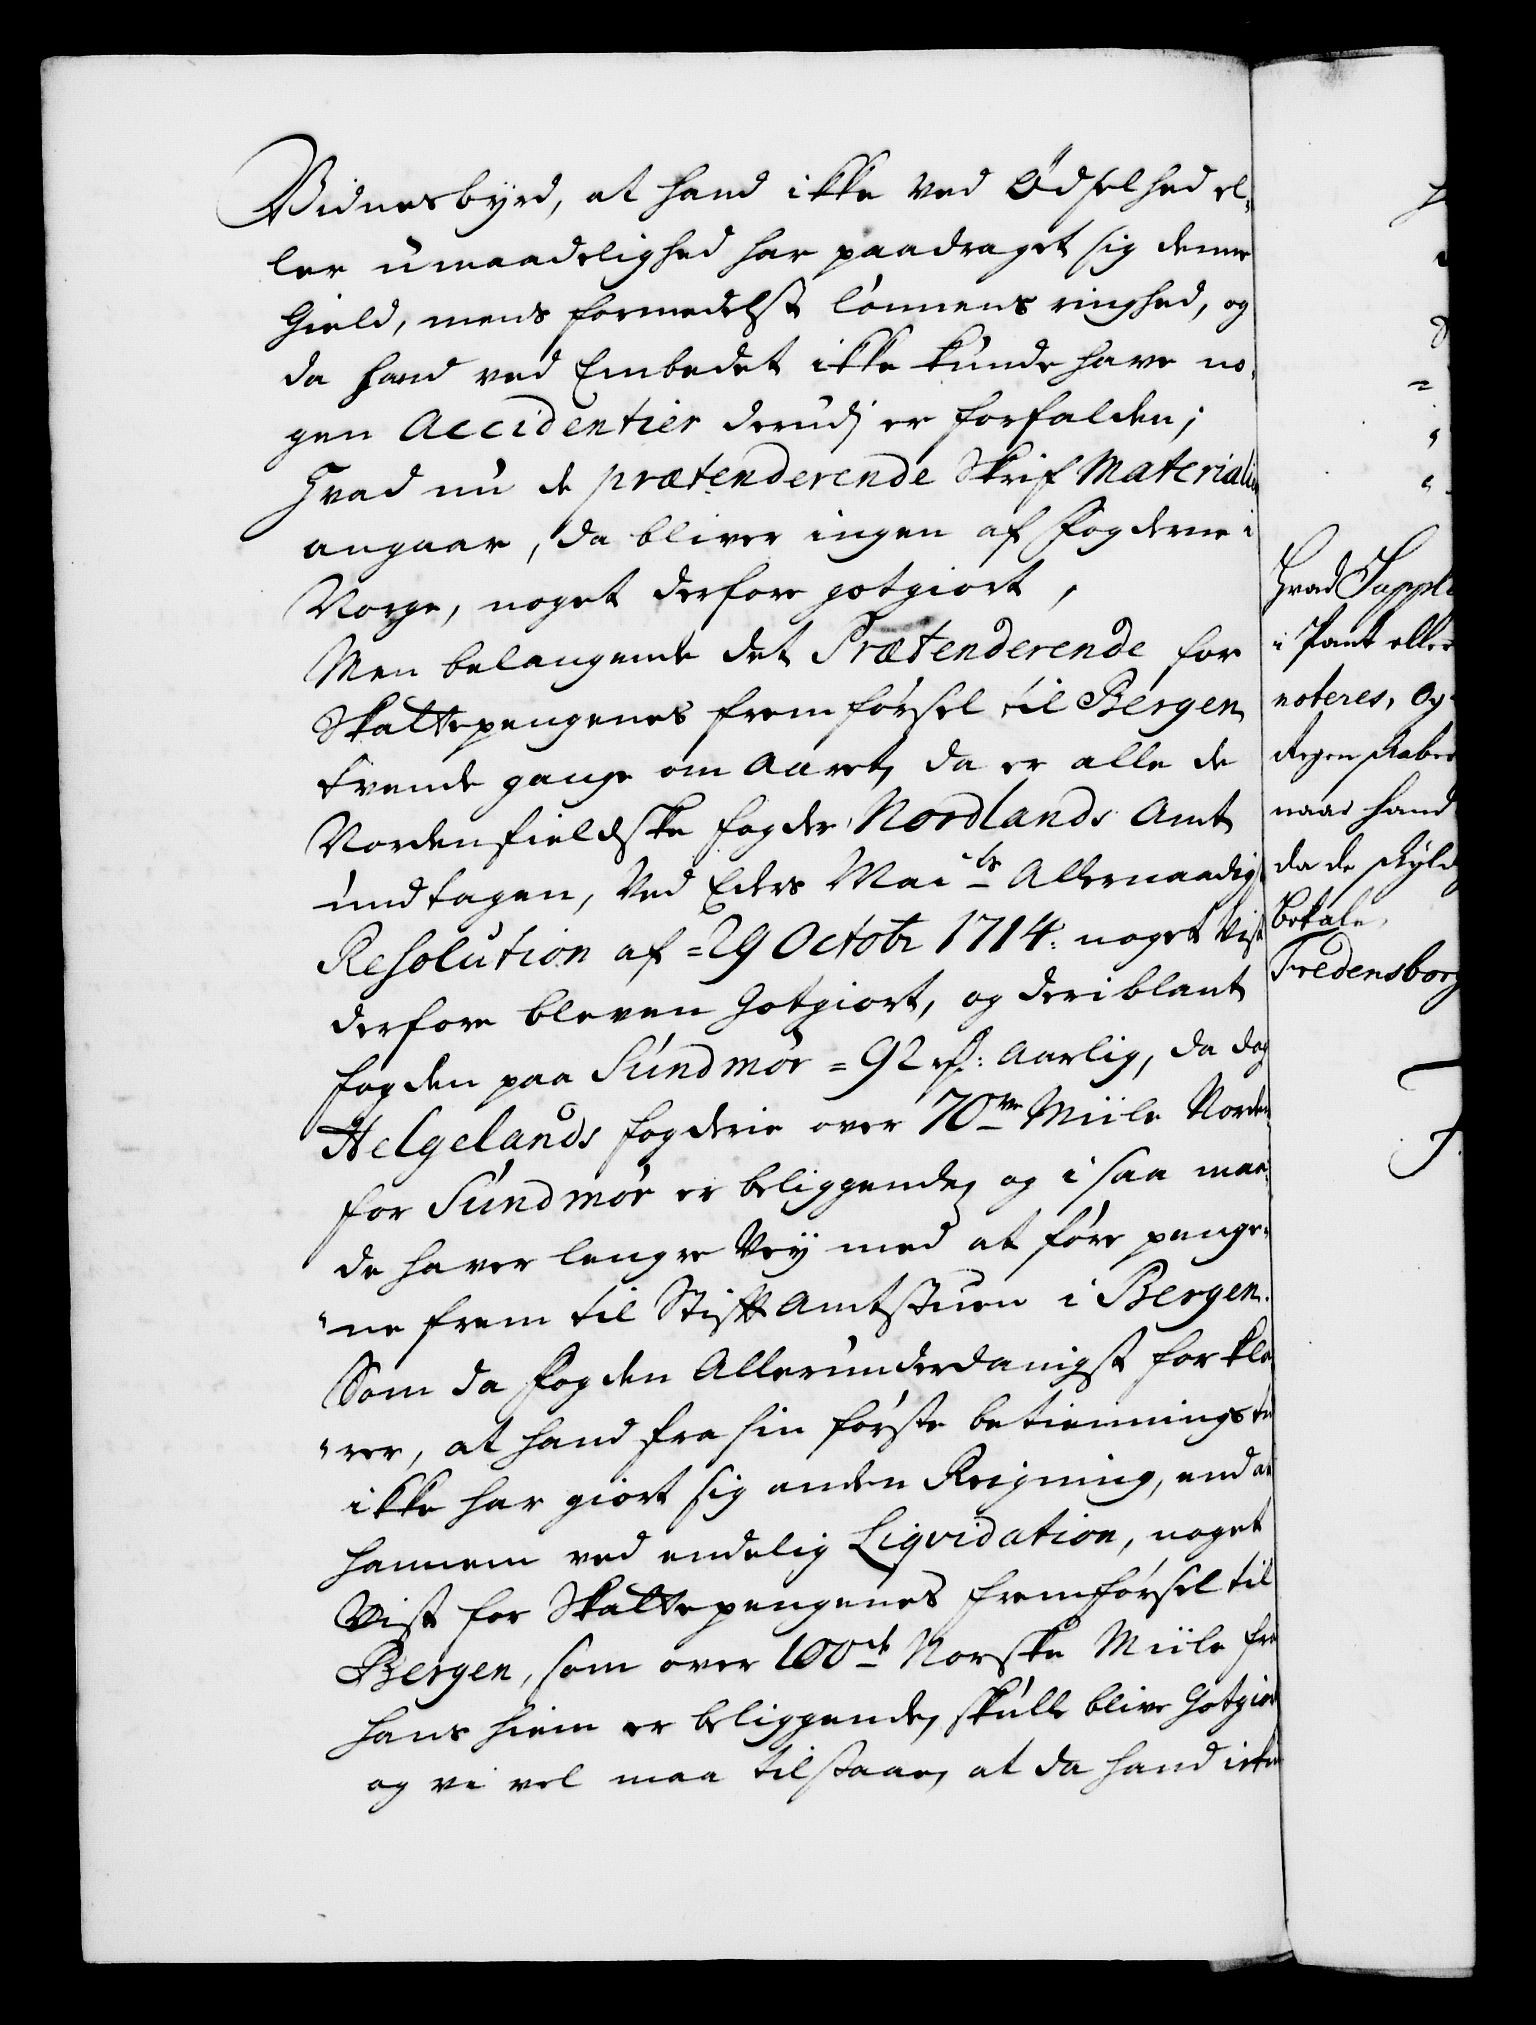 Vidnesbyrd, at hand ikke ved Ødselhed el-
ler umaadelighed har paadraget sig denne
Gield, mens formedelst lønnens ringhed, og
da hand ved Embedet ikke kunde have no-
gen Accidentier derudj er forfalden;
Hvad nu de prætenderende Skrif Materialier
angaar, da bliver ingen af Fogderne i
Norge, noget derfore gotgiort,
Men belangende det Prætenderende for
Skattepengenes fremførsel til Bergen
tvende gange om Aaret, da er alle de
Nordenfieldske fogder, Nordlands Amt
undtagen, Ved Eders Maits Allernaadigst
Resolution af =29 Octobr 1714: noget Vist
derfore bleven Gotgiort, og deriblant
fogden paa Sundmør = 92 rd: Aarlig, da dog
Helgelands fogderie over 70ve Miile Norden
for Sundmør er beliggende, og i saa maa-
de haver lengre Vey med at føre penge-
ne frem til Stift Amtstuen i Bergen.
Som da fogden Allerunderdanigst forkla-
rer, at hand fra sin første betiennings tid
ikke har giort sig anden Reigning, end at
hannem ved endelig Liqvidation, noget
Vist for Skattepengenes fremførsel til
Bergen, som over 100de Norske Miile fra
hans hiem er beliggende, skulle blive Gotgiort
og vi vel maa tilstaae, at da hand icke
Hvad Suppli
i Pant eller
noteres, og
Regenskaber
naar hand
da de skyld
betale.
Fredensborg